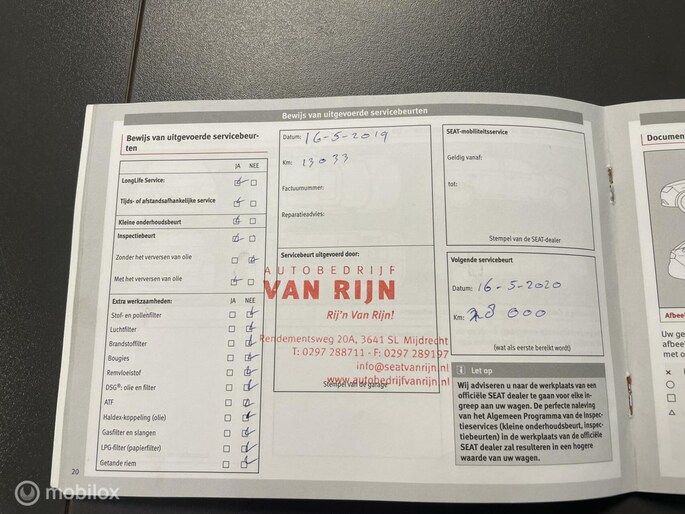 Bewijs van uitgevoerde servicebeurten
Bewijs van uitgevoerde servicebeur-
ten
JA NEE
LongLife Service:
Tijds- of afstandsafhankelijke service
Kleine onderhoudsbeurt
Inspectiebeurt
Zonder het verversen van olie
Met het verversen van olie
Extra werkzaamheden: JA NEE
Stof- en pollenfilter
Luchtfilter
Brandstoffilter
Bougies
Remvloeistof
DSG®: olie en filter
ATF
Haldex-koppeling (olie)
Gasfilter en slangen
LPG-filter (papierfilter)
Getande riem
20
Datum: 16-5-2019
Km: 13033
Factuurnummer:
Reparatieadvies:
Servicebeurt uitgevoerd door:
AUTOBEDRIJF
VAN RIJN
Rij'n Van Rijn!
Rendementsweg 20A, 3641 SL Mijdrecht
T: 0297 288711 - F: 0297 289197
info@seatvanrijn.nl
www.autobedrijfvanrijn.nl
Stempel van de garage
SEAT-mobiliteitsservice
Geldig vanaf:
tot:
Stempel van de SEAT-dealer
Volgende servicebeurt
Datum: 16-5-2020
Km: 28 000
(wat als eerste bereikt wordt)
Let op
Wij adviseren u naar de werkplaats van een
officiële SEAT dealer te gaan voor elke in-
greep aan uw wagen. De perfecte naleving
van het Algemeen Programma van de Inspec-
tieservices (kleine onderhoudsbeurt, inspec-
tiebeurten) in de werkplaats van de officiële
SEAT dealer zal resulteren in een hogere
waarde van uw wagen.
Documen
Uw ge
afbee
met o
mobilox